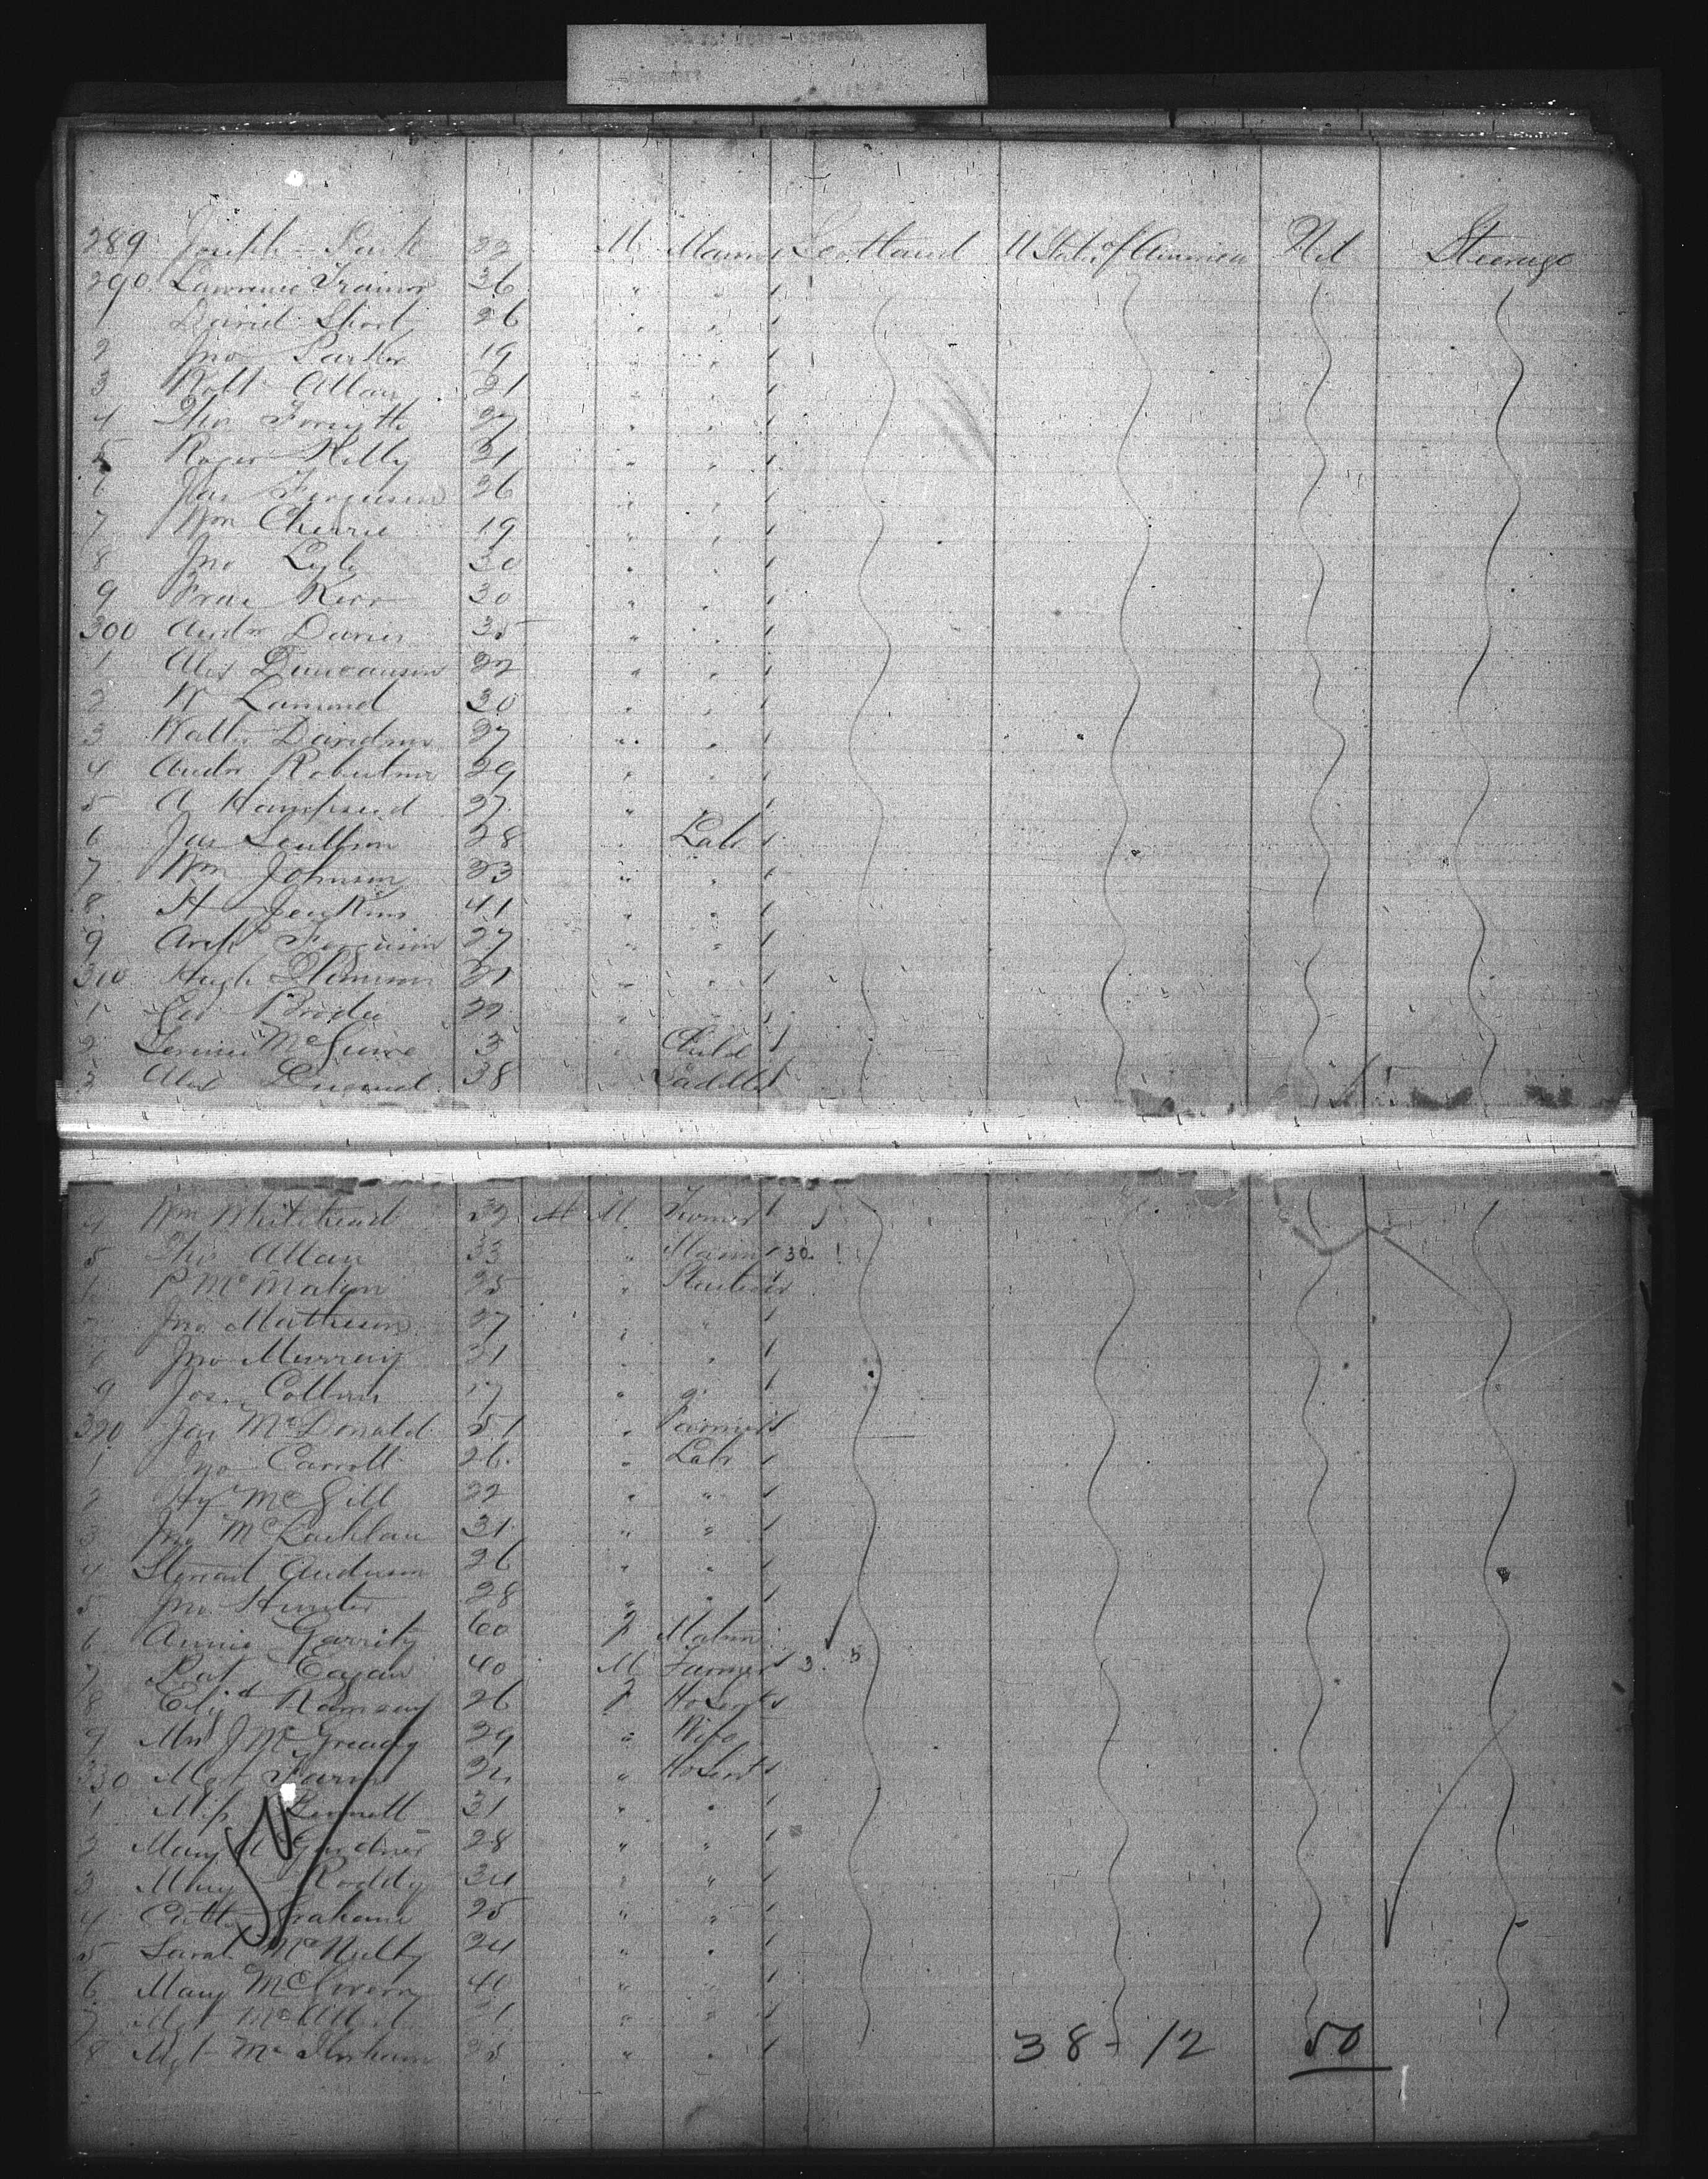 289 Joseph Park 22 M Mason Scotland U States of America Nil Steerage
290 Lawrence Trainor 36 " "
1 David Short 26 " "
2 Jno Parker 19 " "
3 Robt Allan 21 " "
4 Thos Forsyth 27 " "
5 Roger Kelly 31 " "
6 Jas Ferguson 26 " "
7 Wm Cherrie 19 " "
8 Jno Lyle 30 " "
9 Kerr 30 " "
300 Andw Davies 35 " "
1 Alex Duncanson 22 " "
2 W Lamond 30 " "
3 Walt Davidson 27 " "
4 Andw Robertson 29 " "
5 A 27 "
6 Jas 28 " Labr
7 Wm Johnson 23 " "
8 H Jenkins 41 " "
9 Arch Ferguson 27 " "
310 Hugh 31 " "
1 Geo Brodie 22 " "
2 McGuire 3 " Child
3 Alex 38 Saddler
4 Wm Whitehead 32 M
5 Thos Allan 33 " Mason 30
P McMahon 25 "
Jno Matheson 27 " "
Jno Murray 31 " "
9 Jos 17 " "
320 Jas McDonald 51 " Farmer
1 Jno Carroll 26 " Labr
2 Hy McGill 22 " "
3 Jno McLachlan 31 " "
4 Stewart Anderson 26 " "
5 Jno Hunter 28 " "
6 Annie Garrity 60 F Matron
7 Pat Eagan 40 M Farmer 3
8 Eliz Ramsay 26 F
9 Mrs J McGready 29 " Wife
330 Mgt 24 "
1 Miss Bennett 31 " "
2 Mary A Gardner 28 " "
3 Mary Roddy 34 " "
4 Grahame 25 " "
5 Sarah McNulty 24 " "
6 Mary McGivern 40 " "
7 Mgt 21 " "
8 Mgt Mc 25 " "
38 - 12 50